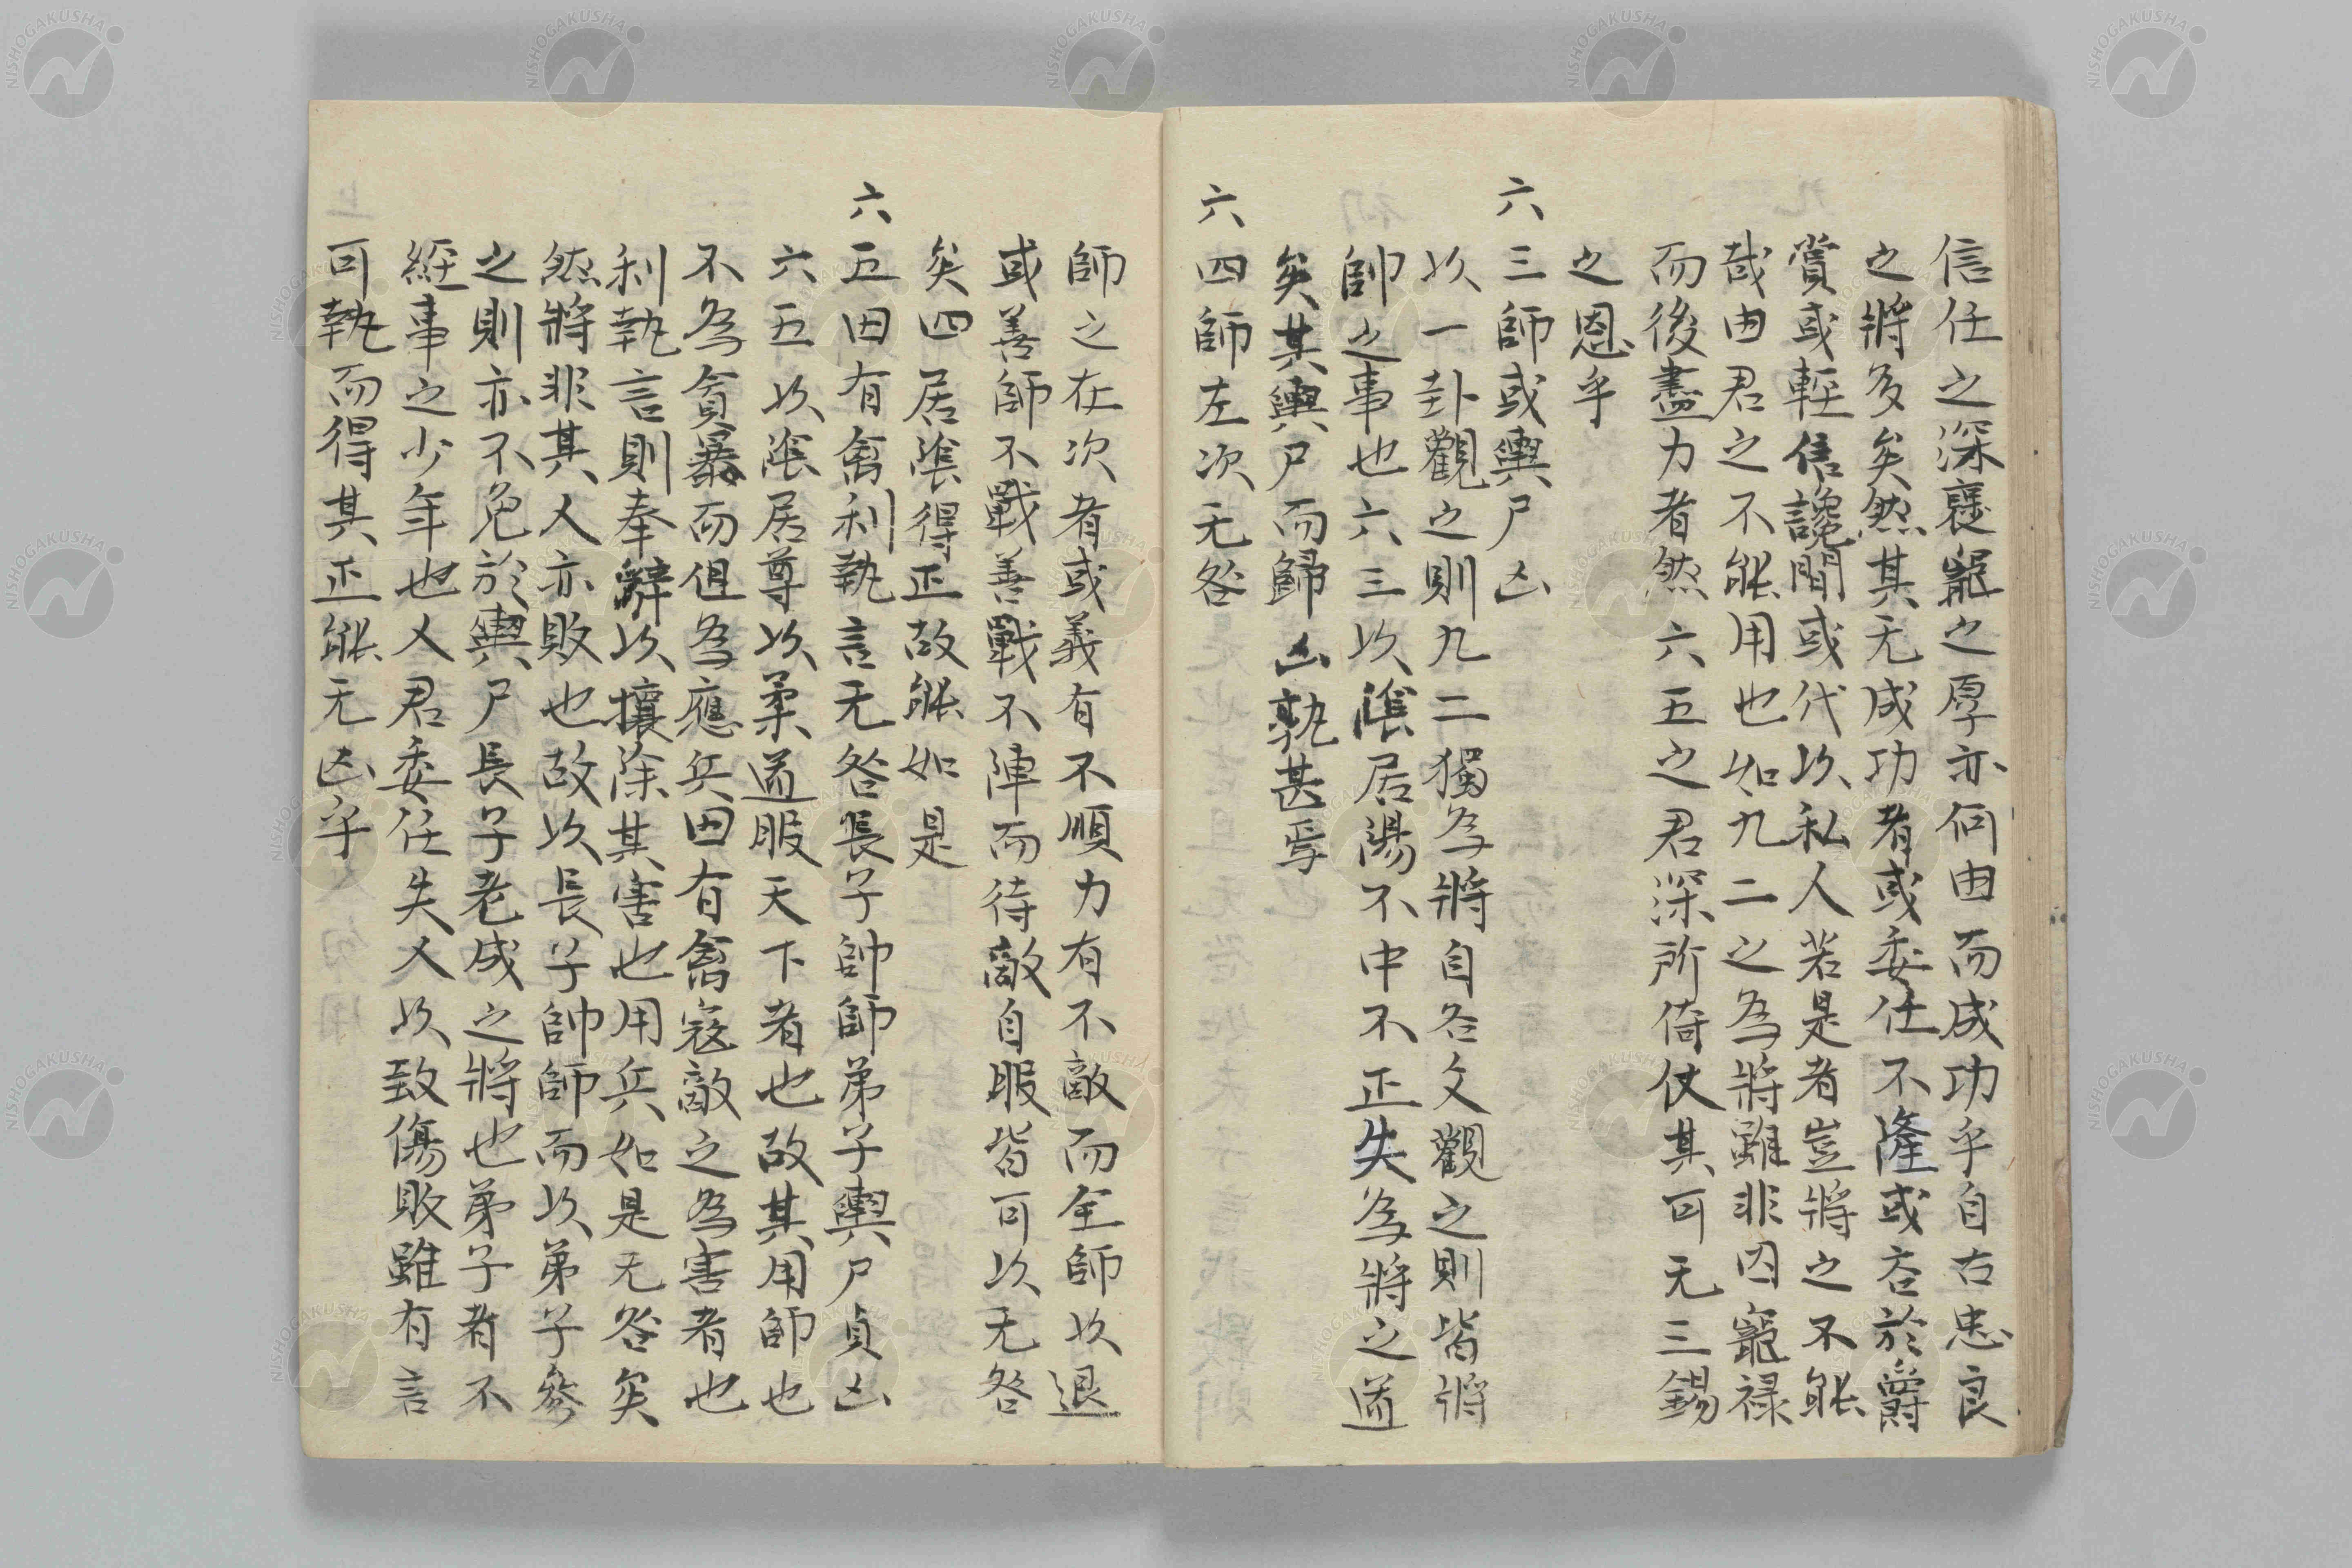 信任之深襃寵之厚亦何由而成功乎自古忠良
之將多矣然其无成功者或委任不隆或吝於爵
賞或輕信讒間或代以私人若是者豈將之不能
哉由君之不能用也如九二之為將雖非因寵禄
而後盡力者然六五之君深所倚仗其可无三錫
之恩乎
六三師或輿尸凶
以一卦觀之則九二獨為將自各爻觀之則皆將
帥之事也六三以陰居陽不中不正失為將之道
矣其輿尸而歸凶孰甚焉
六四師左次无咎
師之在次者或義有不順力有不敵而全師以退
或善師不戰善戰不陣而待敵自服皆可以无咎
矣四居陰得正故能如是
六五田有禽利執言无咎長子帥師弟子輿尸貞凶
六五以陰居尊以柔道服天下者也故其用師也
不為貪暴而但為應兵田有禽寇敵之為害者也
利執言則奉辭以攘除其害也用兵如是无咎矣
然將非其人亦敗也故以長子帥師而以弟子參
之則亦不免於輿尸長子老成之將也弟子者不
經事之少年也人君委任失人以致傷敗雖有言
可執而得其正能无凶乎
NISHOGAKUSHA